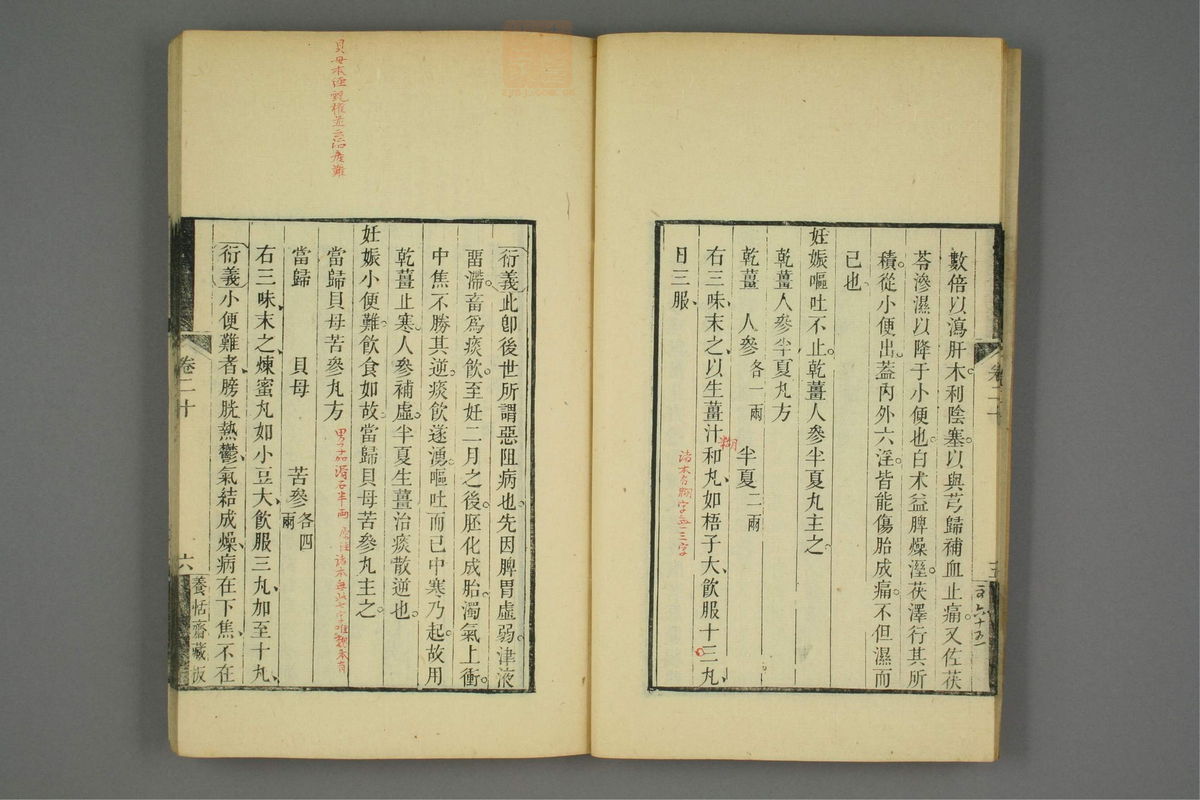 數倍以瀉肝木利陰塞以與芎歸補血止痛又佐茯
苓滲濕以降于小便也白术益脾燥溼茯澤行其所
積從小便出蓋內外六淫皆能傷胎成痛不但濕而
已也
妊娠嘔吐不止乾薑人參半夏丸主之
乾薑人參半夏丸方
乾薑 人參各一兩 半夏二兩
右三味末之以生薑汁和丸如梧子大飲服十三丸
糊
諸本有糊字無三字
日三服
衍義此卽後世所謂惡阻病也先因脾胃虛弱津液
畱滯畜爲痰飲至妊二月之後胚化成胎濁氣上衝
中焦不勝其逆痰飲遂湧嘔吐而已中寒乃起故用
乾薑止寒人參補虛半夏生薑治痰散逆也
妊娠小便難飲食如故當歸貝母苦參丸主之
當歸貝母苦參丸方
男子加滑石半兩
當歸 貝母 苦參各四兩
右三味末之煉蜜丸如小豆大飲服三丸加至十丸
衍義小便難者膀胱熱鬱氣結成燥病在下焦不在
卷二十
六
養恬齋藏板